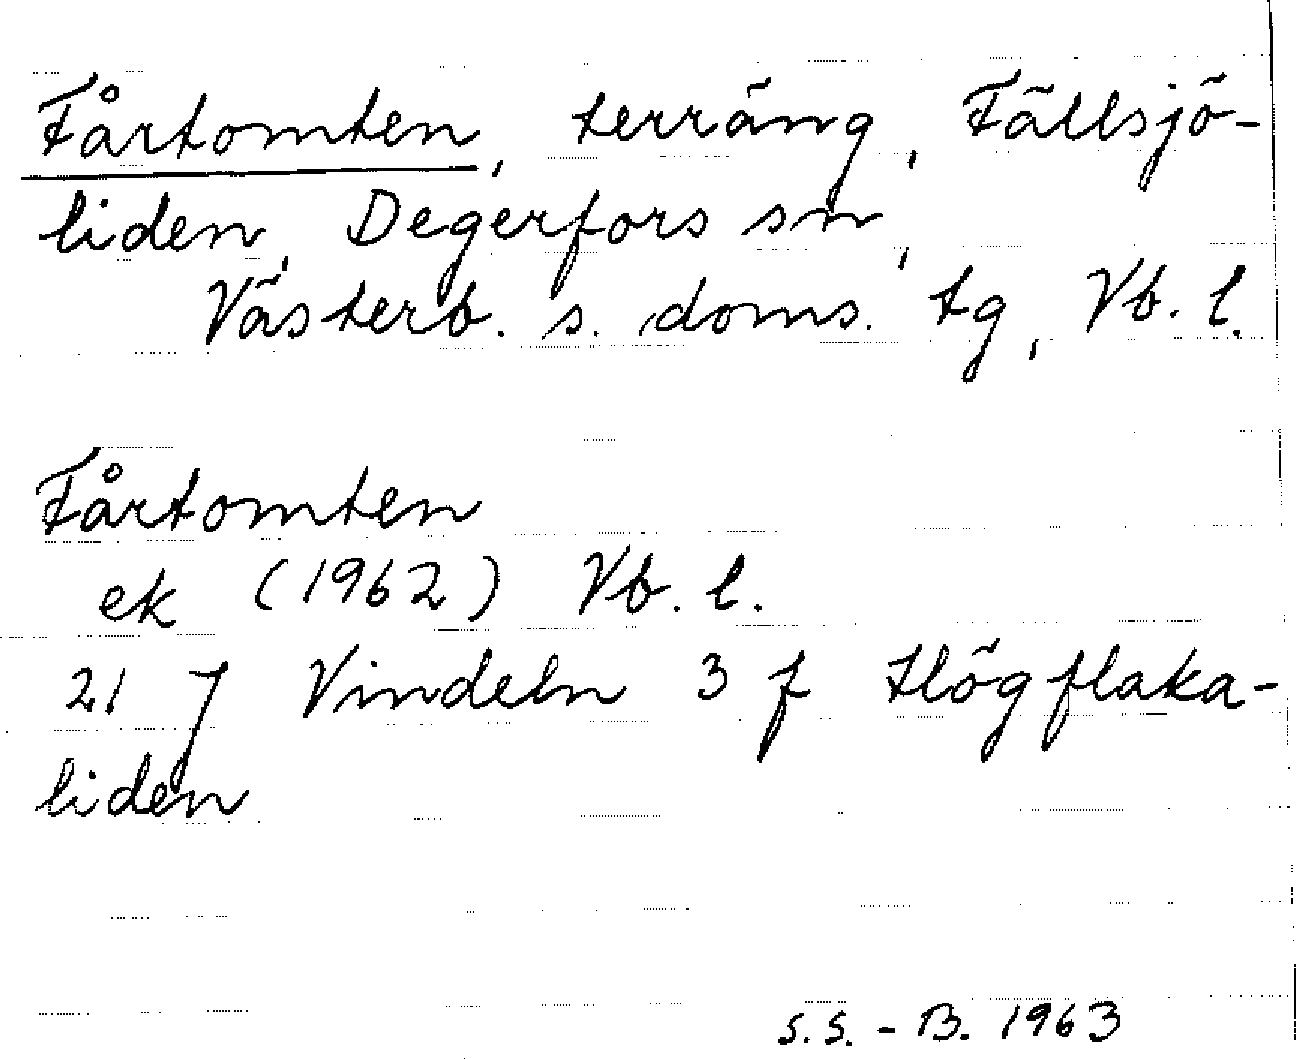 Fårtomten, terräng, Fällsjö-
liden, Degerfors sn,
Västerb. s. doms. tg, Vb. l.
Fårtomten
ek (1962) Vb. l.
21 J Vindeln 3 f Högflaka-
liden
S.S. - B. 1963